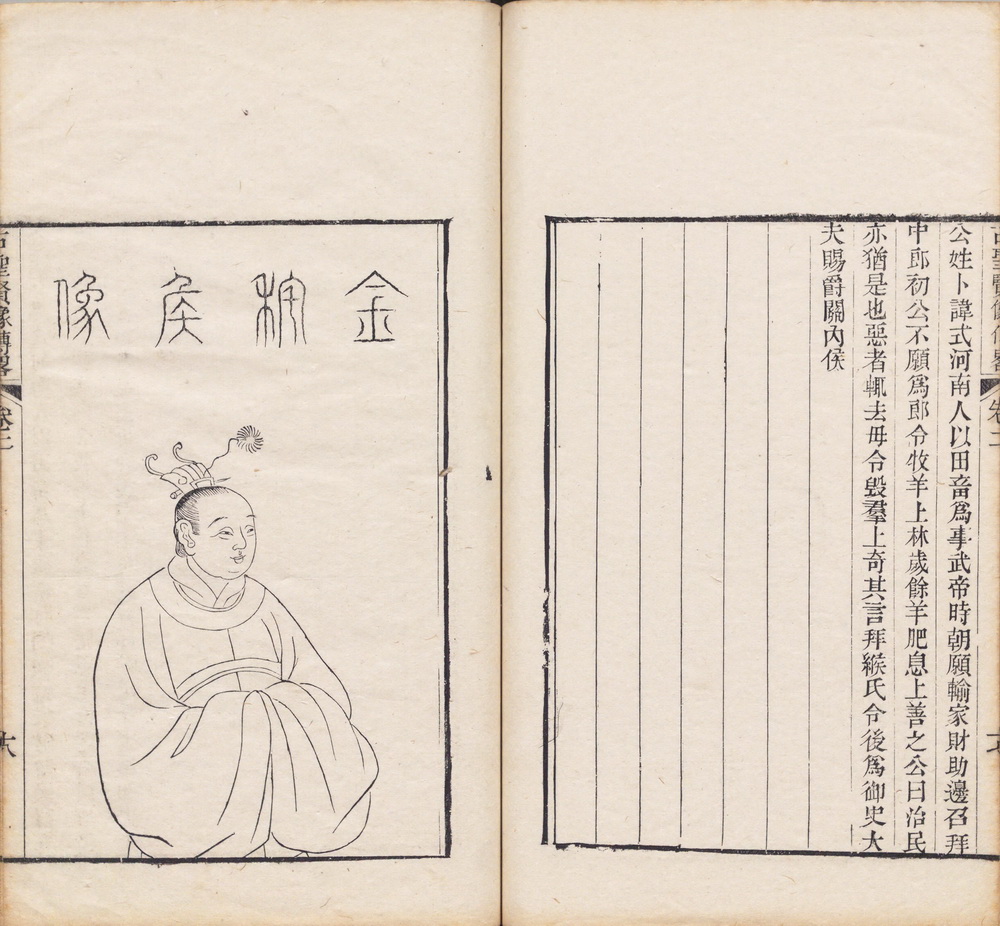 聖賢像傳畧 卷二
公姓卜諱式河南人以田畜爲事武帝時朝願輸家財助邊召拜
中郎初公不願爲郎令牧羊上林歲餘羊肥息上善之公曰治民
亦猶是也惡者輒去毋令毀羣上奇其言拜緱氏令後爲御史大
夫賜爵關內侯
金秺侯像
古聖賢像傳畧 卷二